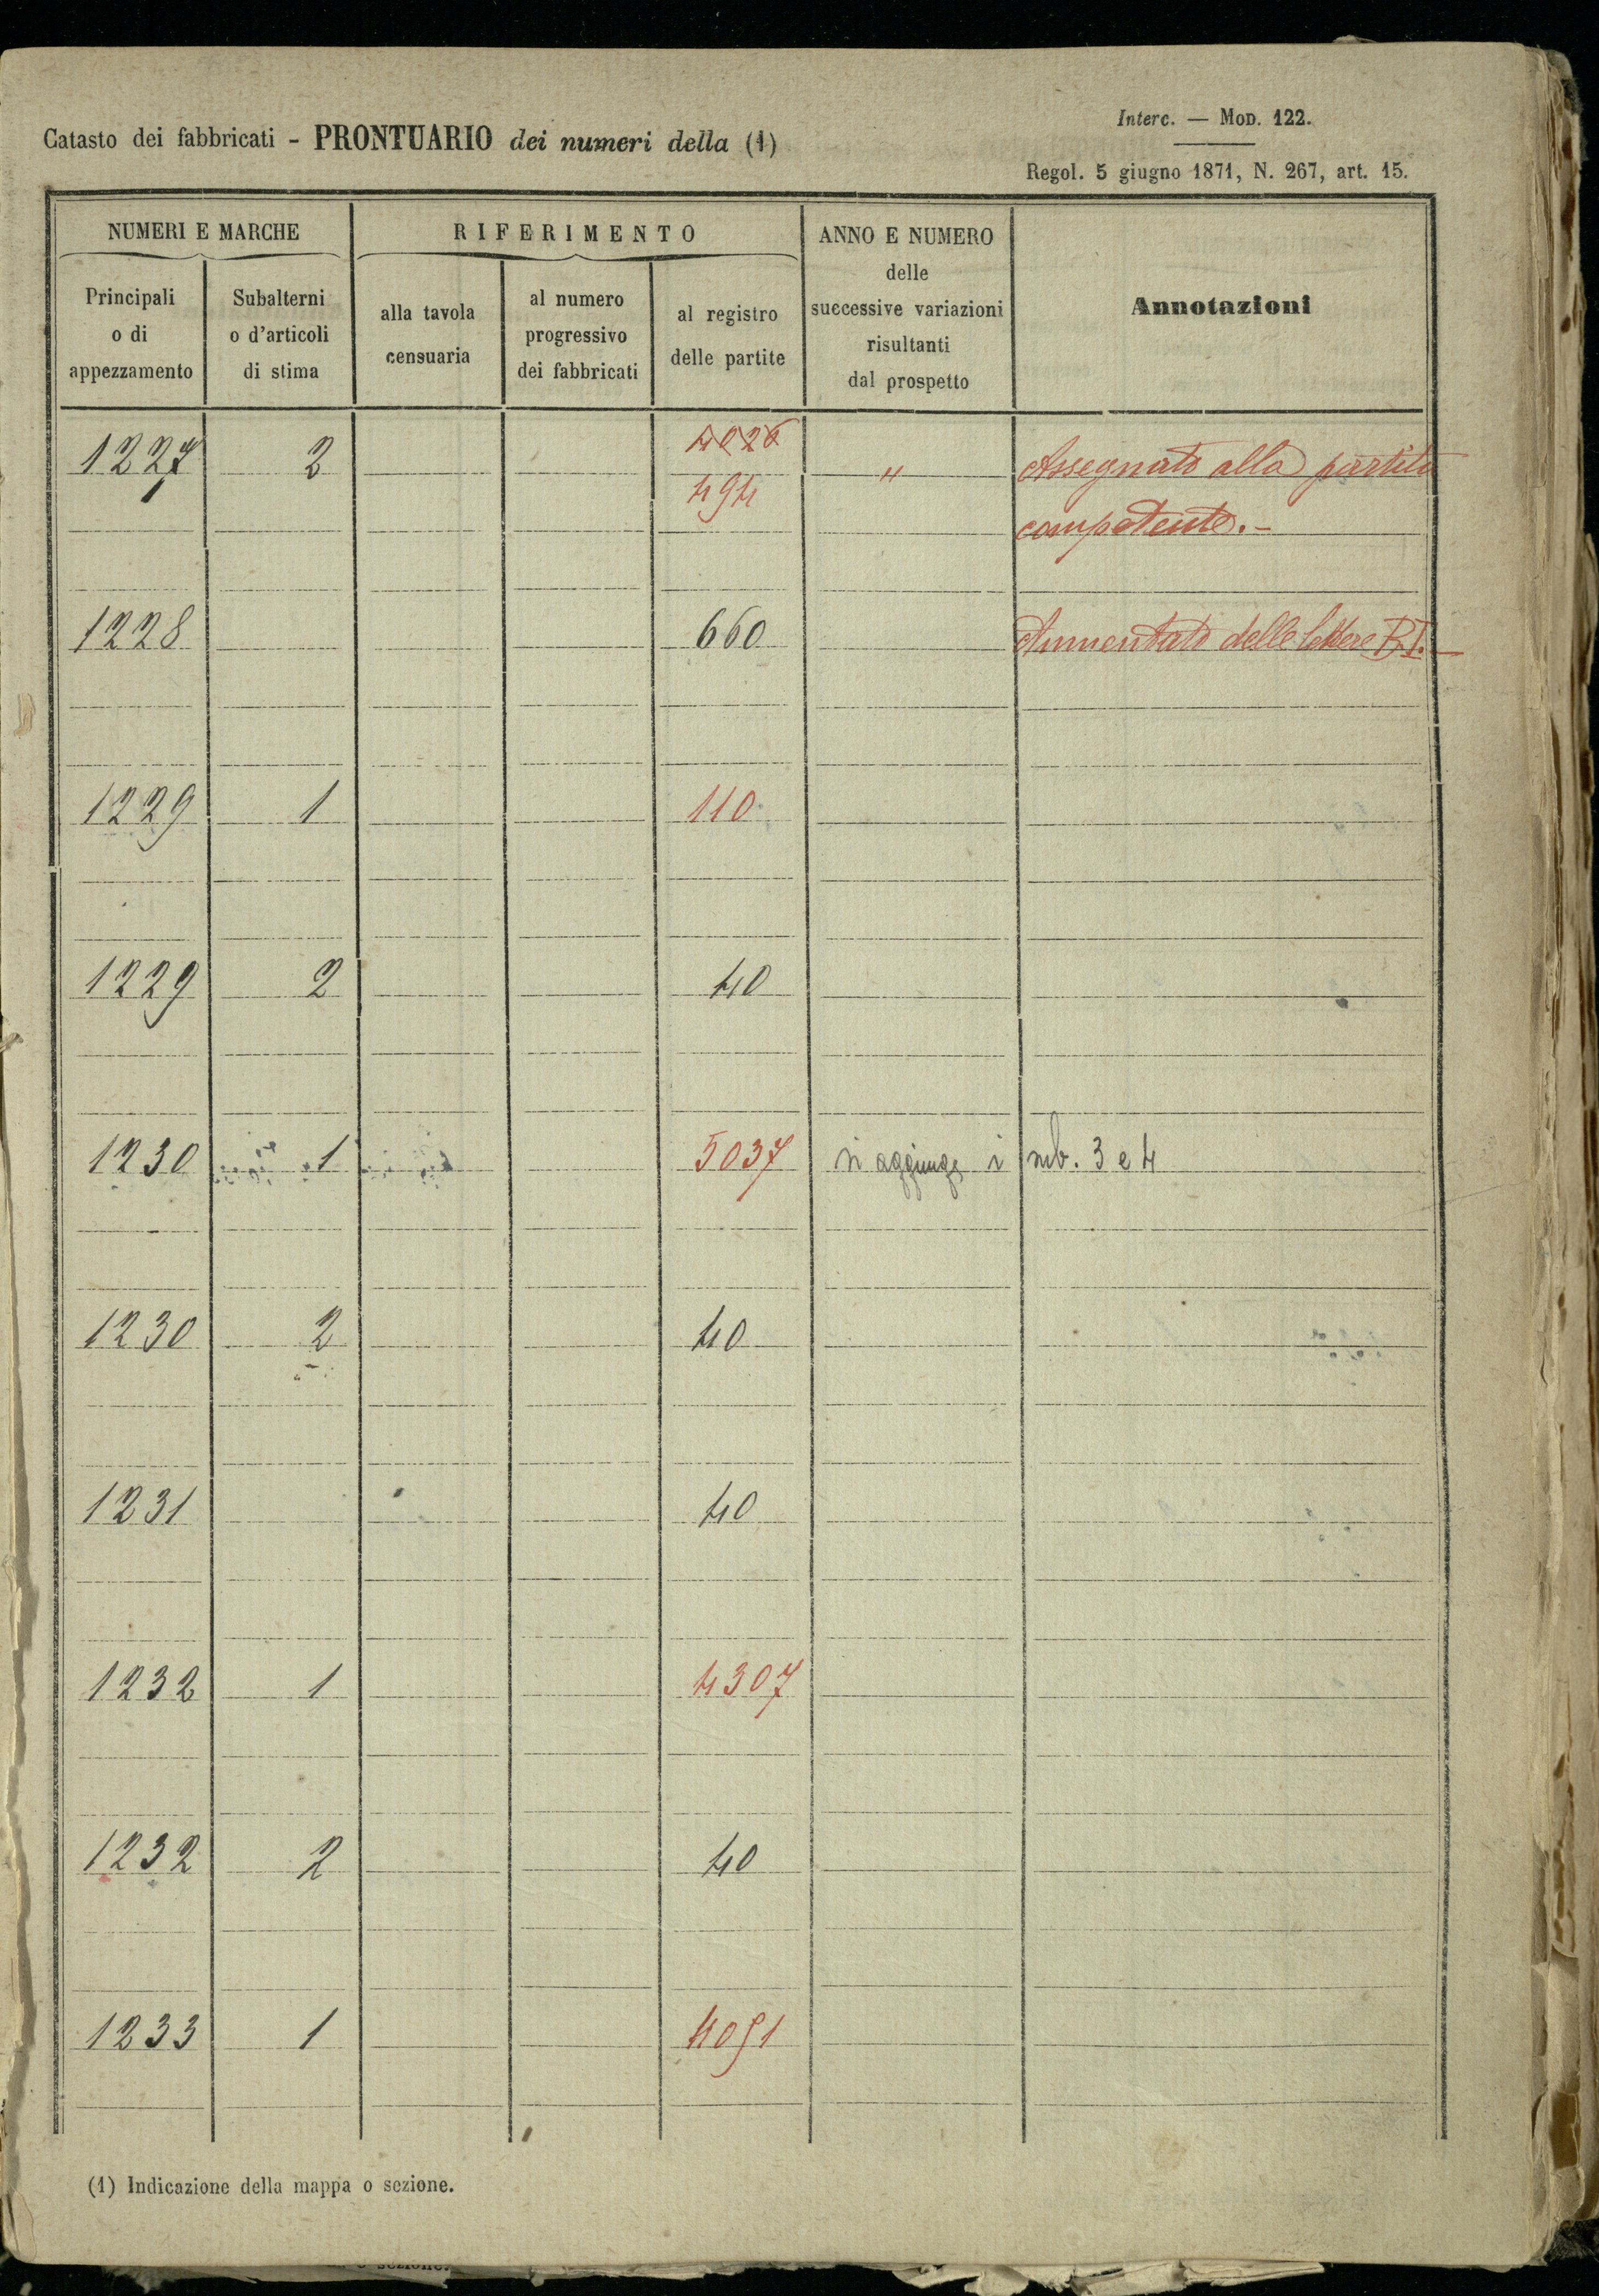 Interc. — Mod. 122.
Catasto dei fabbricati - PRONTUARIO dei numeri della (1)
Regol. 5 giugno 1871, N. 267, art. 15.
NUMERI E MARCHE RIFERIMENTO ANNO E NUMERO delle successive variazioni risultanti dal prospetto Annotazioni
Principali o di appezzamento Subalterni o d'articoli di stima alla tavola censuaria al numero progressivo dei fabbricati al registro delle partite
4026
1227 2 " Assegnato alla partita
494
competente.-
1228 660 Aumentato delle lettere
1229 1 110
1229 2 40
1230 1 5037 si aggiunge i sub. 3 e 4
1230 2 40
1231 40
1232 1 4307
1232 2 40
1233 1 4051
(1) Indicazione della mappa o sezione.
o sezione.